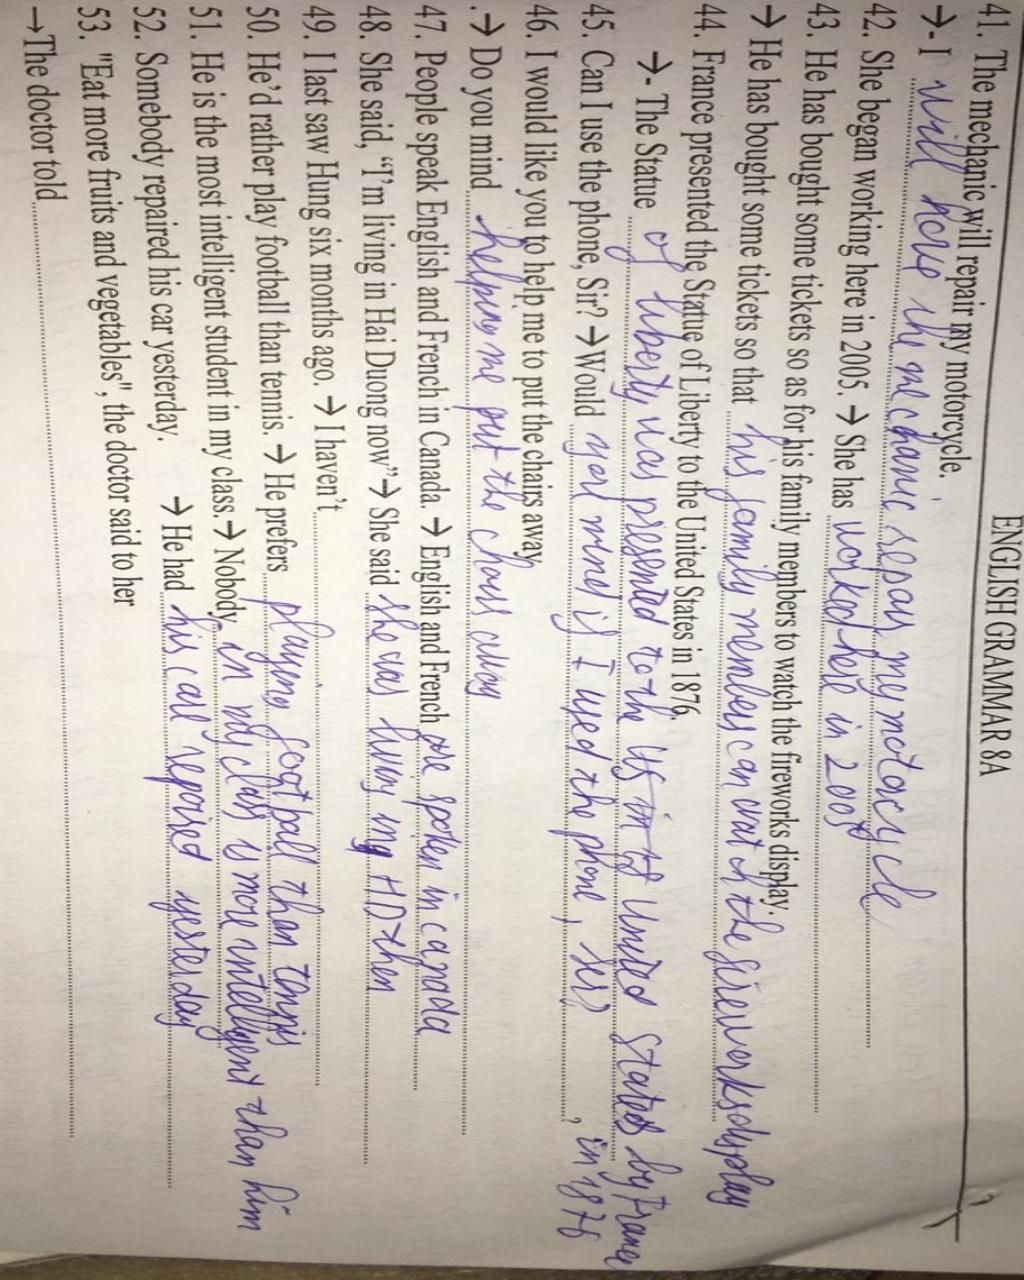 ENGLISH GRAMMAR 8A
41. The mechanic will repair my motorcycle.
→- I will have the mechanic repair my motorcycle
42. She began working here in 2005. → She has worked here in 2005
43. He has bought some tickets so as for his family members to watch the fireworks display.
→ He has bought some tickets so that his family members can watch the fireworks display
44. France presented the Statue of Liberty to the United States in 1876.
→- The Statue of liberty was presented to the United States by France in 1876
45. Can I use the phone, Sir? → Would you mind if I used the phone, sir?
46. I would like you to help me to put the chairs away.
.→ Do you mind helping me put the chairs away
47. People speak English and French in Canada. → English and French are spoken in canada
48. She said, "I'm living in Hai Duong now" → She said she was living in HD then
49. I last saw Hung six months ago. → I haven't
50. He'd rather play football than tennis. → He prefers playing football than tennis
51. He is the most intelligent student in my class. → Nobody in my class is more intelligent than him
52. Somebody repaired his car yesterday. → He had his car repaired yesterday
53. "Eat more fruits and vegetables", the doctor said to her
→The doctor told